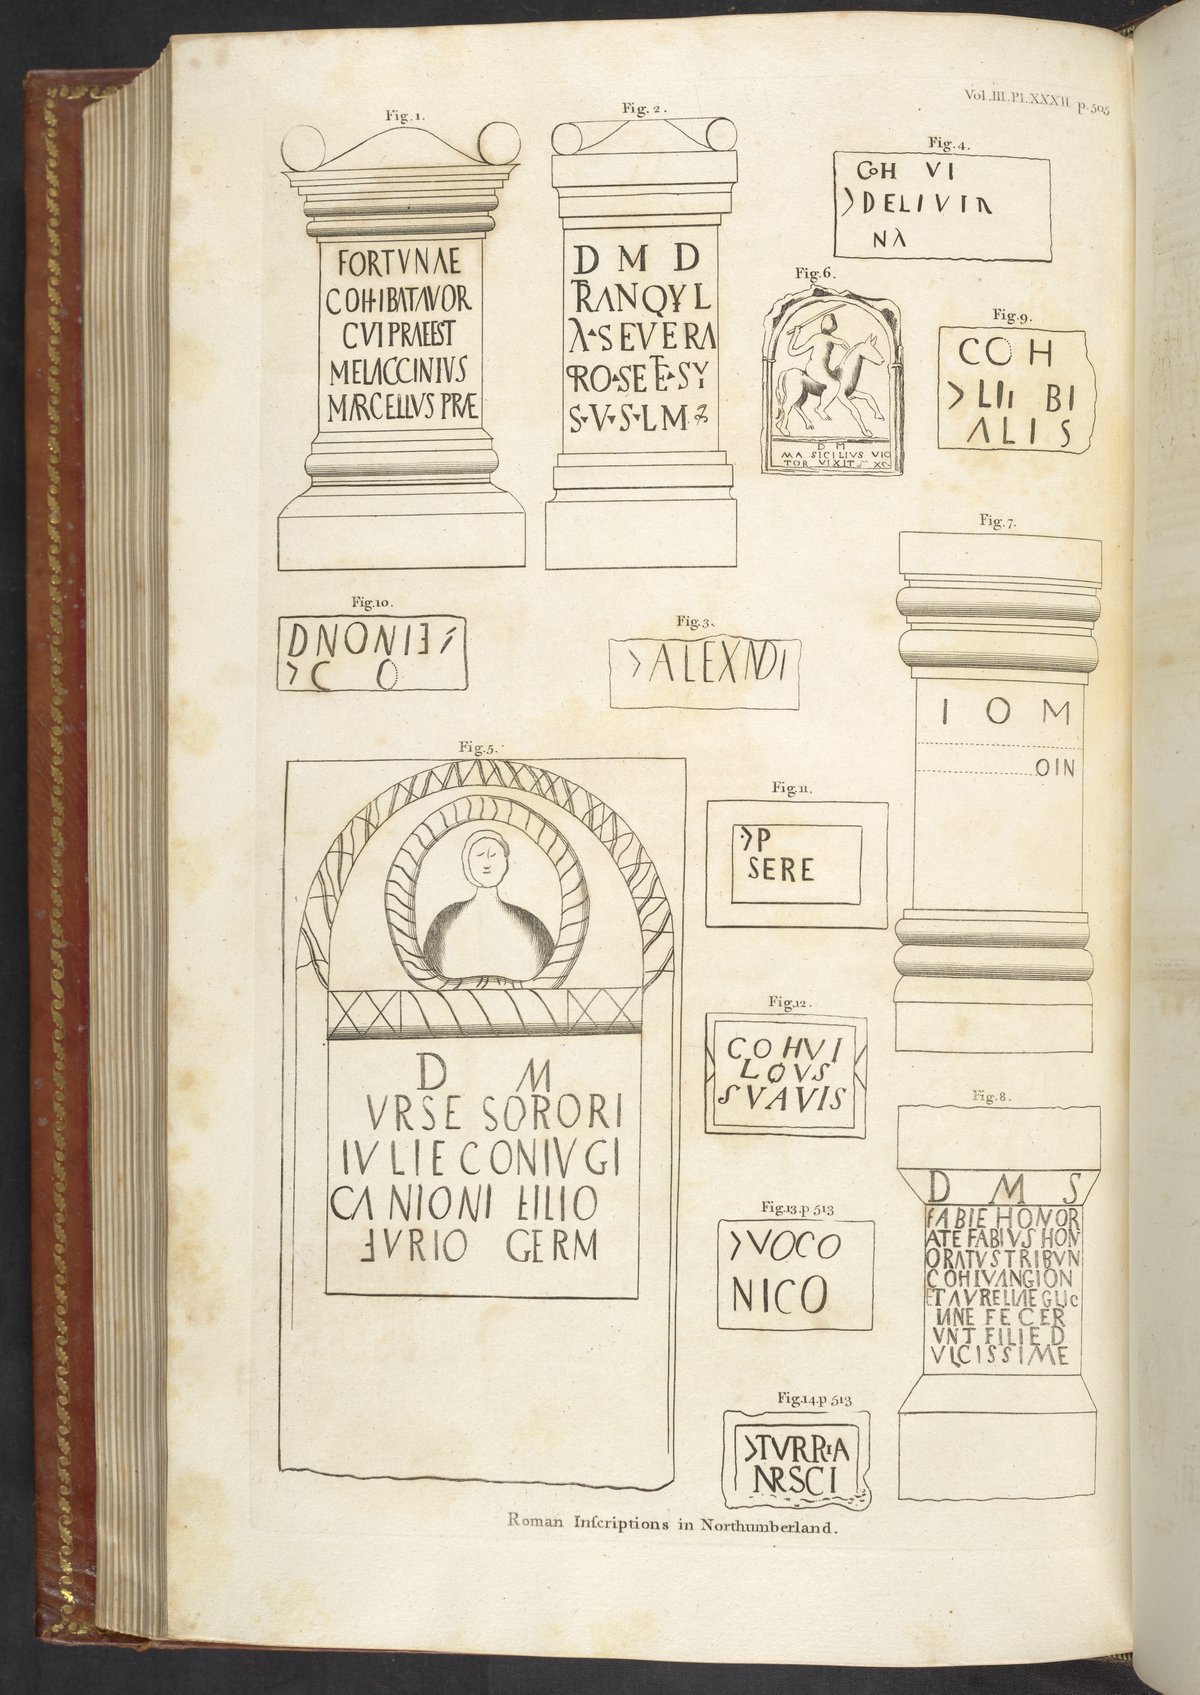 Vol.III.Pl.XXXII. p.505
Fig.1.
FORTVNAE
COH·IBATAVOR
CVIPRAEEST
MELACCINIVS
MARCELLVS PRÆ
Fig.2.
D M D
TRANQVL
A SEVERA
PROSETESV
S V S L M
Fig.4.
COH VI
>DELIVIR
NA
Fig.6.
D M
MA SICILIVS VIC
TOR VIXIT
Fig.9.
COH
>LIı BI
ALIS
Fig.10.
DNONIE
>C O
Fig.3.
>ALEXNDI
Fig.7.
I O M
OIN
Fig.5.
D M
VRSE SORORI
IVLIE CONIVGI
CANIONI FILIO
ƎVRIO GERM
Fig.11.
>P
SERE
Fig.12.
COHVI
LOVS
SVAVIS
Fig.8.
D M S
FABIE HONOR
ATE FABIVS HON
ORATVS TRIBVN
COHIVANGION
ET AVRELIAE GLIC
IANE FECER
VNT FILIE D
VLCISSIME
Fig.13.p 513
>VOCO
NICO
Fig.14.p 513
>TVRRIA
NRSCI
Roman Inſcriptions in Northumberland.